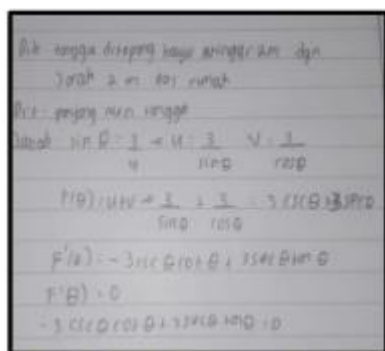 Dik tangga ditopang kayu setinggi 2m dgn
Jarak 2 m dari rumah
Dit : panjang min tangga
Jawab sin θ = 3/u → u = 3/sin θ V = 3/cos θ
F(θ) = u+v → 3/sin θ + 3/cos θ = 3 csc θ + 3 sec θ
F'(θ) = -3 csc θ cot θ + 3 sec θ tan θ
F'(θ) = 0
-3 csc θ cot θ + 3 sec θ tan θ = 0